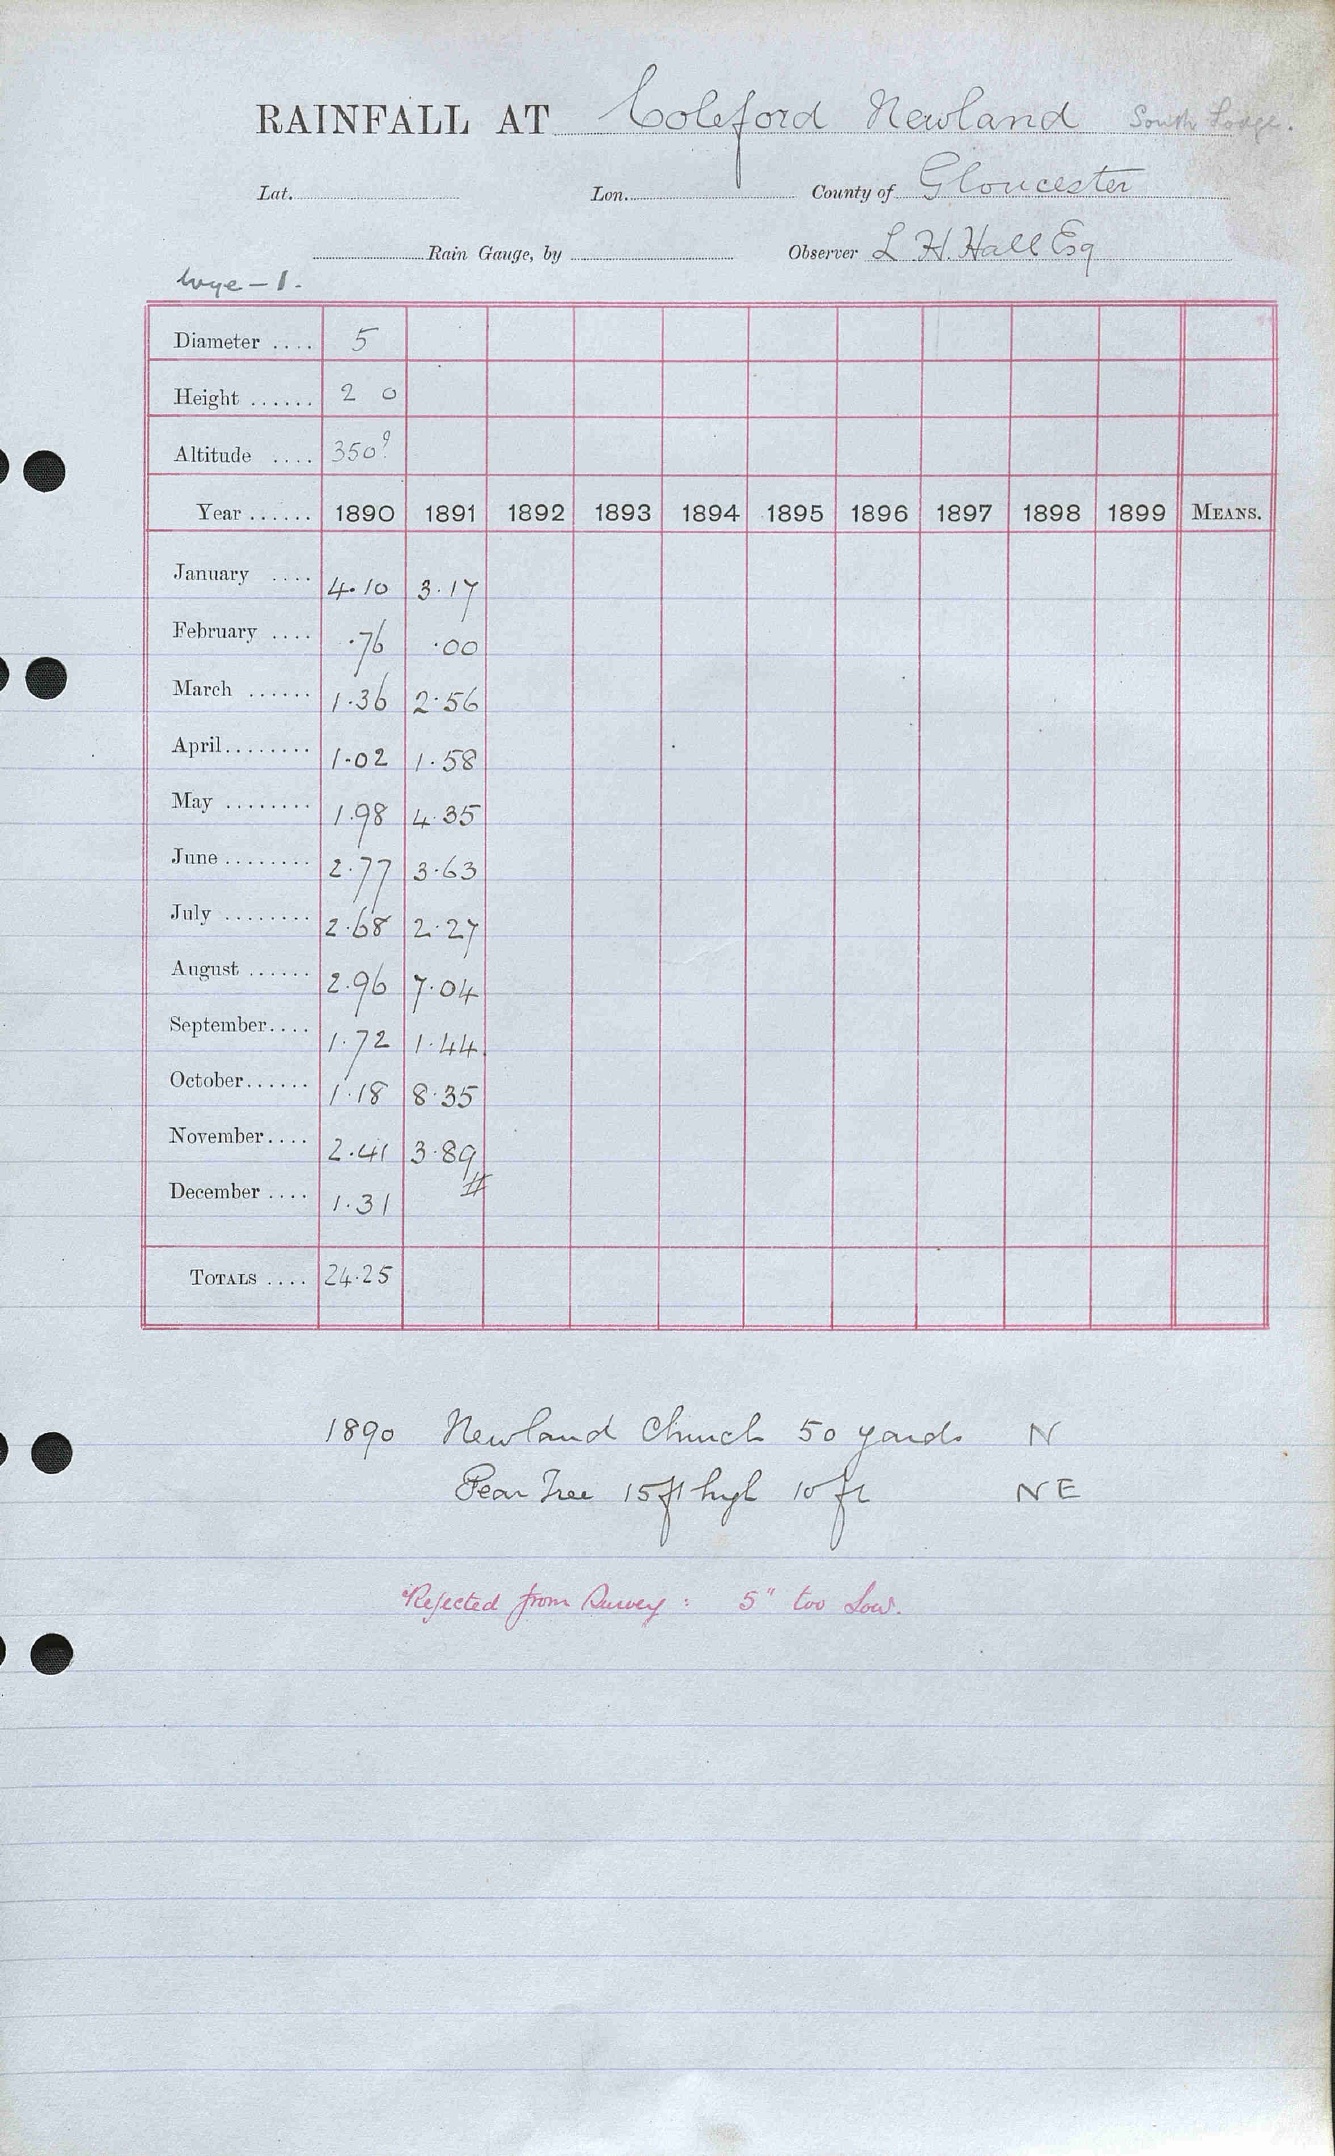 RAINFALL AT Coleford Newland South Lodge.
Lat. Lon. County of Gloucester
Rain Gauge, by Observer L H. Hall Esq
Wye – 1.
Diameter .... 5
Height ...... 2 0
Altitude .... 350?
Year ...... 1890 1891 1892 1893 1894 1895 1896 1897 1898 1899 MEANS.
January .... 4.10 3.17
February .... .76 .00
March ...... 1.36 2.56
April ........ 1.02 1.58
May ........ 1.98 4.35
June ........ 2.77 3.63
July ........ 2.68 2.27
August ...... 2.96 7.04
September.... 1.72 1.44
October...... 1.18 8.35
November.... 2.41 3.89
December .... 1.31 #
TOTALS .... 24.25
1890 Newland Church 50 yards N
Pear Tree 15ft high 10 ft NE
Rejected from Survey : 5" too low.